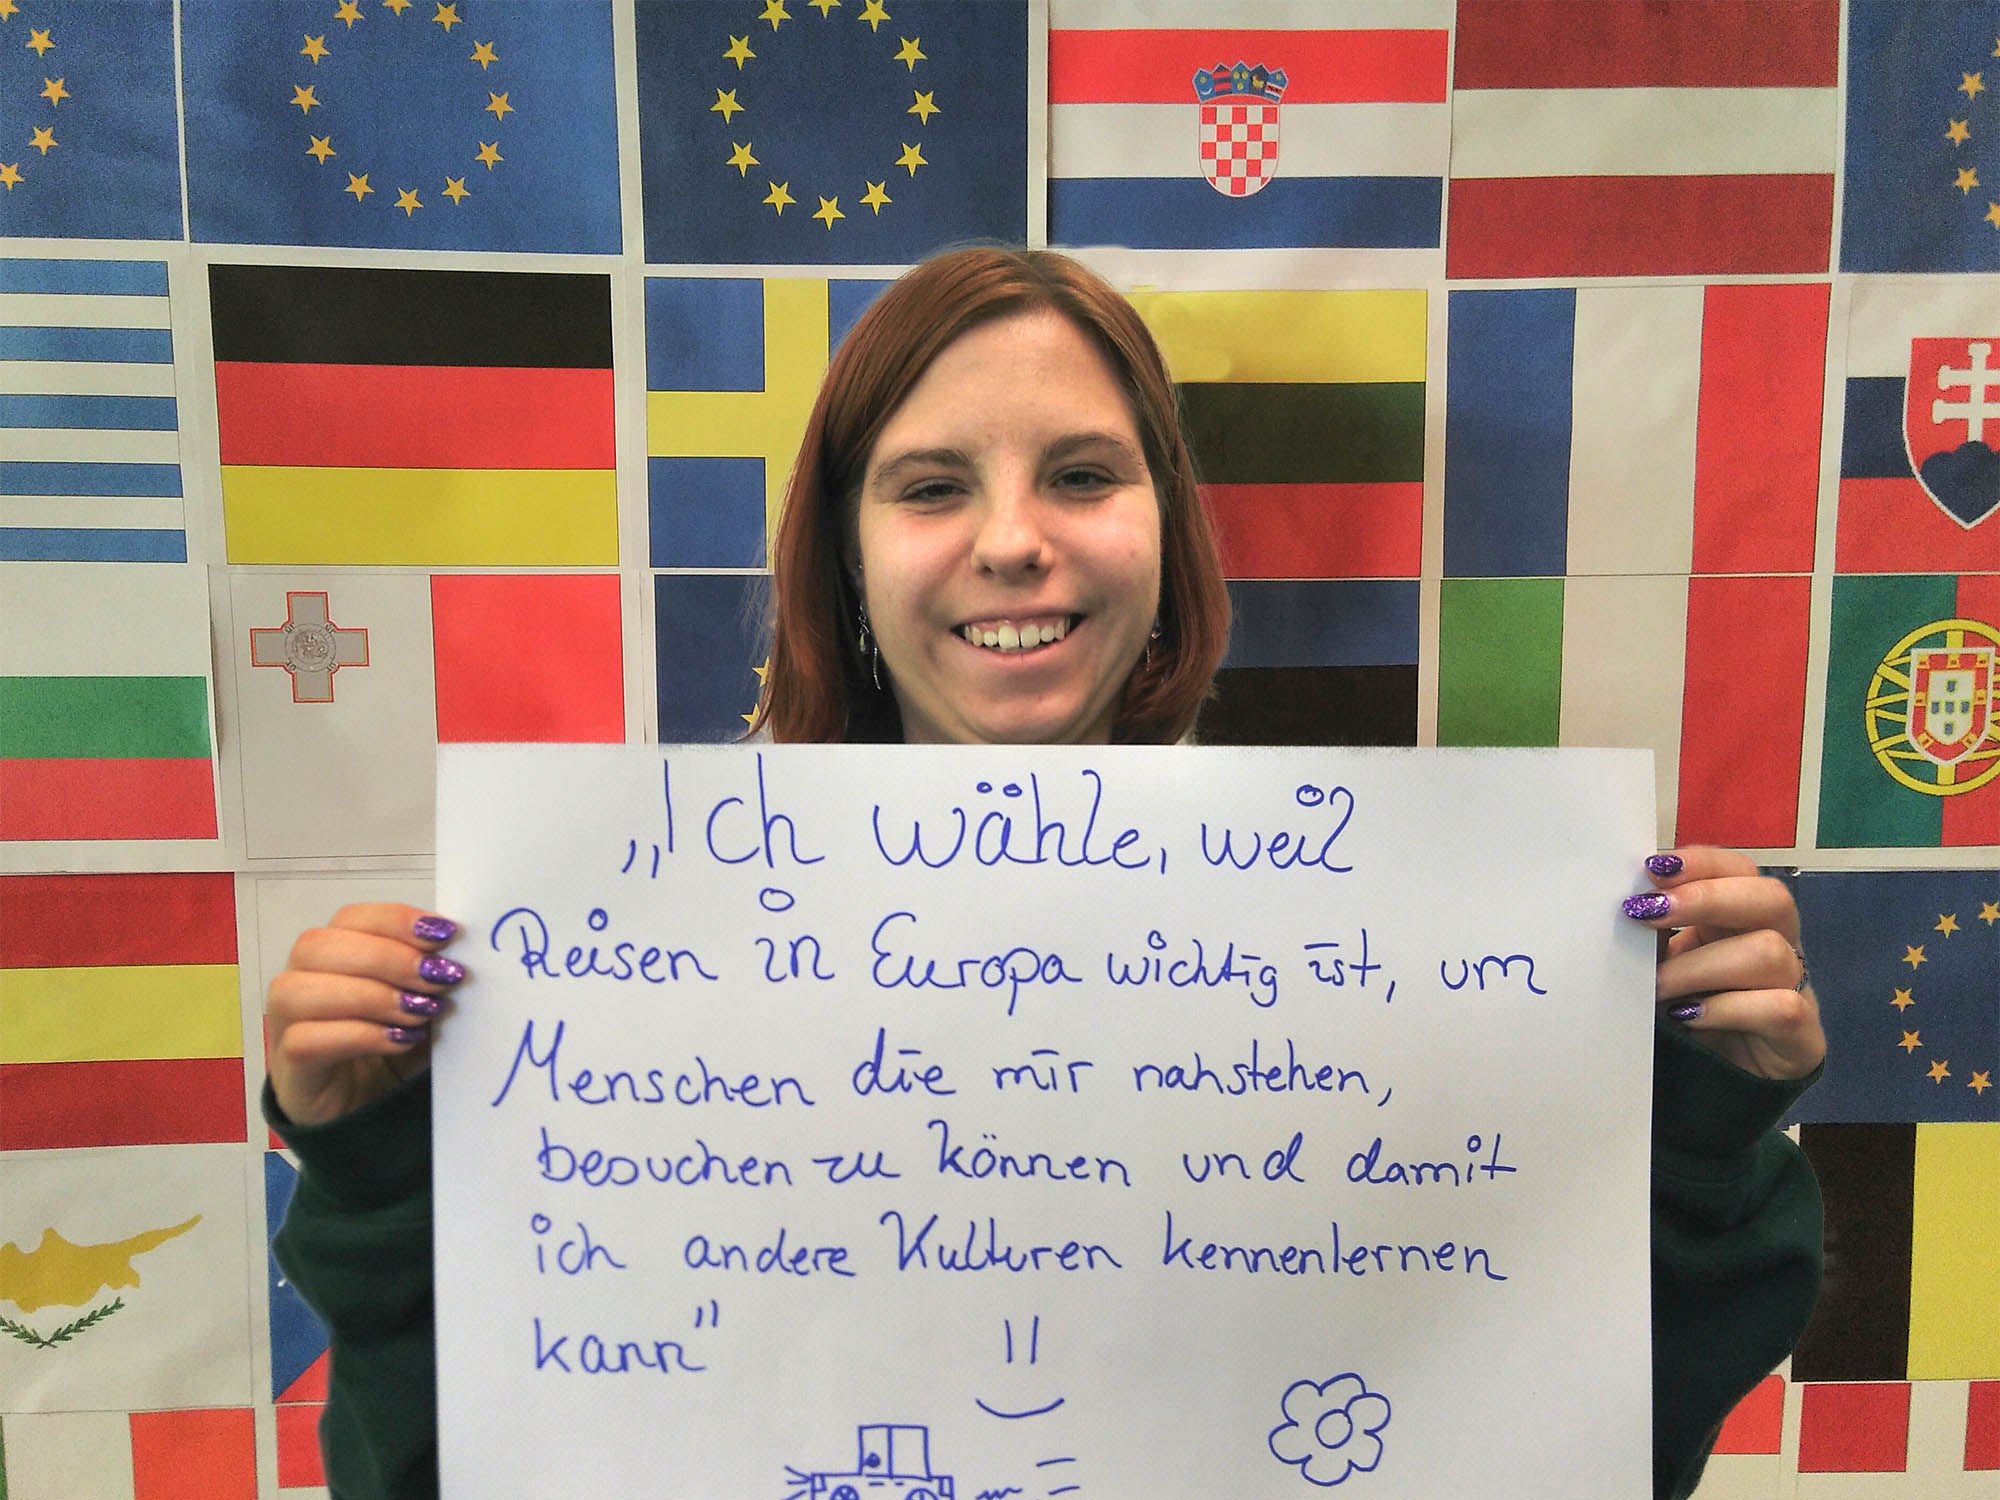 „Ich wähle, weil
Reisen in Europa wichtig ist, um
Menschen die mir nahstehen,
besuchen zu können und damit
ich andere Kulturen kennenlernen
kann"